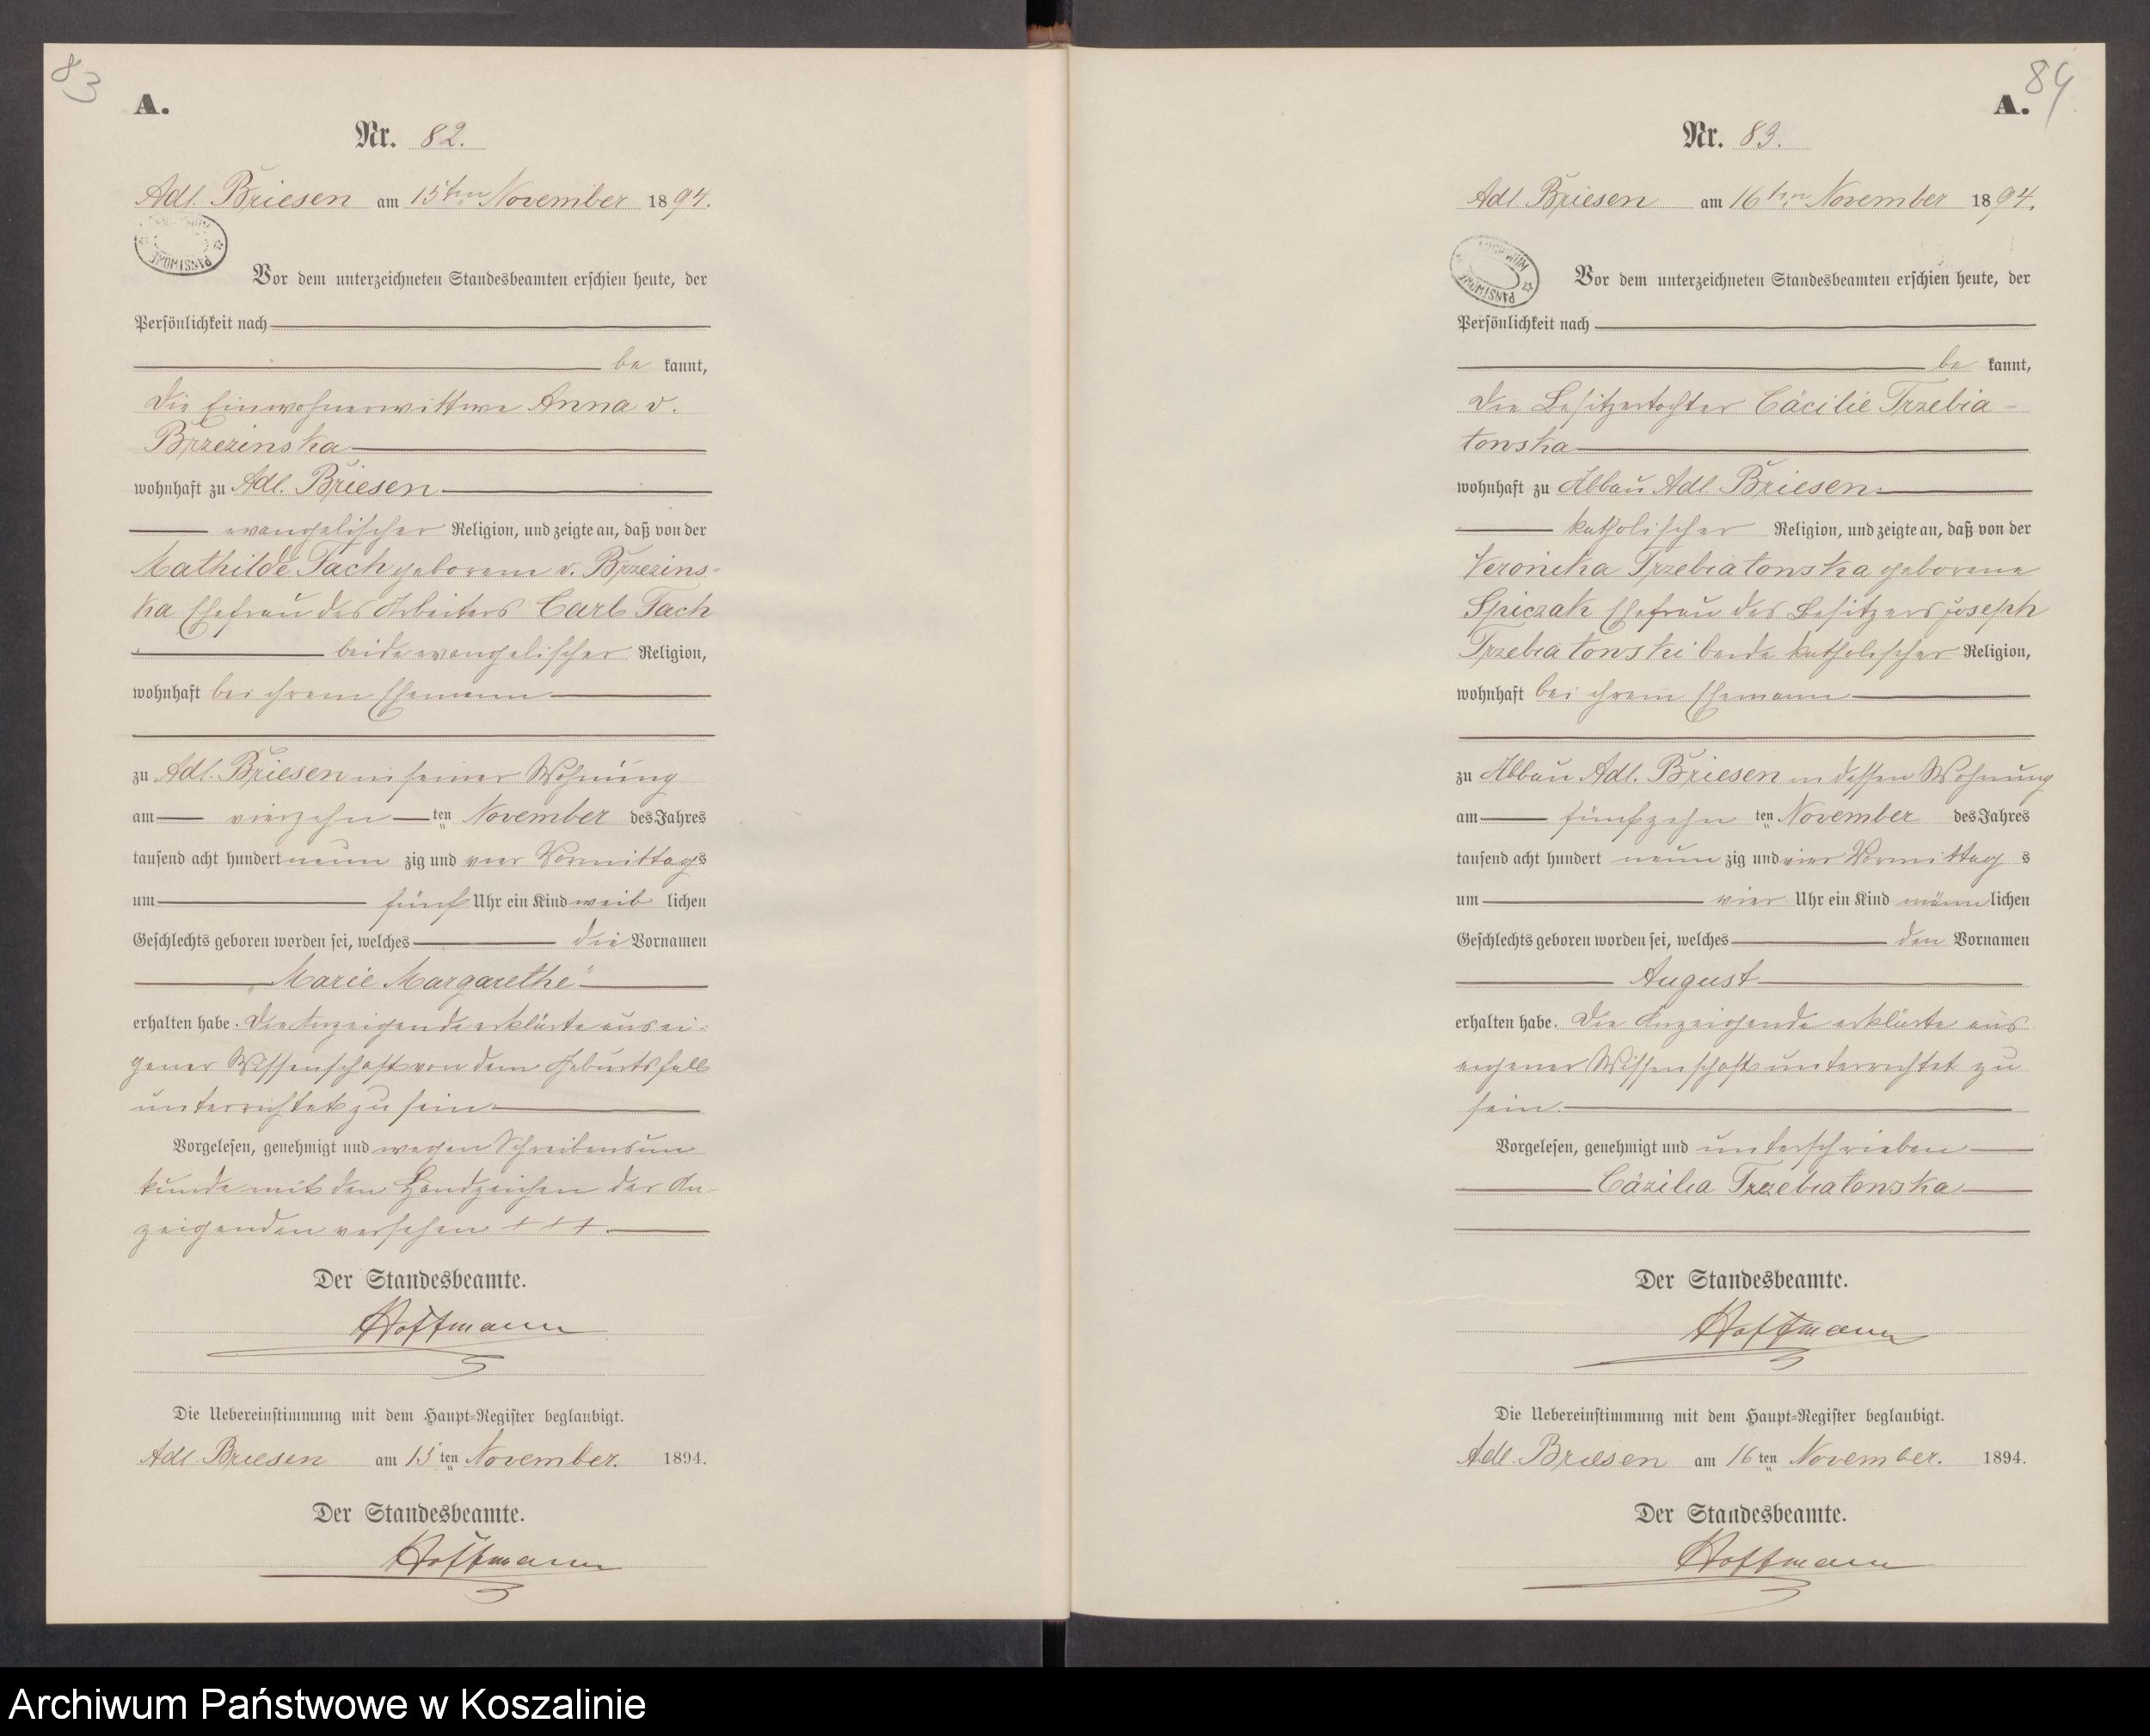 83
A.
Nr. 82.
Adl. Briesen am 15ten November 1894.
Vor dem unterzeichneten Standesbeamten erschien heute, der
Persönlichkeit nach
be kannt,
die Einwohnerwittwe Anna v.
Brzezinska
wohnhaft zu Adl. Briesen
evangelischer Religion, und zeigte an, daß von der
Mathilde Tach geborene v. Brzezins-
ka Ehefrau des Arbeiters Carl Tach
beide evangelischer Religion,
wohnhaft bei ihrem Ehemann
zu Adl. Briesen in seiner Wohnung
am vierzehn ten November des Jahres
tausend acht hundert neun zig und vier Vormittags
um fünf Uhr ein Kind weib lichen
Geschlechts geboren worden sei, welches die Vornamen
„Marie Margarethe"
erhalten habe. Die Anzeigende erklärte aus ei-
gener Wissenschaft von dem Geburtsfall
unterrichtet zu sein
Vorgelesen, genehmigt und wegen Schreibensun
kunde mit den Handzeichen der An-
zeigenden versehen +++.
Der Standesbeamte.
Hoffmann
Die Uebereinstimmung mit dem Haupt-Register beglaubigt.
Adl. Briesen am 15ten November. 1894.
Der Standesbeamte.
Hoffmann
84
A.
Nr. 83.
Adl. Briesen am 16ten November 1894.
ARCHIWUM PAŃSTWOWE
Vor dem unterzeichneten Standesbeamten erschien heute, der
Persönlichkeit nach
be kannt,
die Besitzertochter Cäcilie Trzebia-
towska
wohnhaft zu Abbau Adl. Briesen
katholischer Religion, und zeigte an, daß von der
Veronika Trzebiatowska geborene
Spiczak Ehefrau des Besitzers Joseph
Trzebiatowski beide katholischer Religion,
wohnhaft bei ihrem Ehemann
zu Abbau Adl. Briesen in dessen Wohnung
am fünfzehn ten November des Jahres
tausend acht hundert neun zig und vier Vormittag s
um vier Uhr ein Kind männ lichen
Geschlechts geboren worden sei, welches den Vornamen
August
erhalten habe. Die Anzeigende erklärte aus
eigener Wissenschaft unterrichtet zu
sein.
Vorgelesen, genehmigt und unterschrieben
Cäzilia Trzebiatowska
Der Standesbeamte.
Hoffmann
Die Uebereinstimmung mit dem Haupt-Register beglaubigt.
Adl. Briesen am 16ten November. 1894.
Der Standesbeamte.
Hoffmann
Archiwum Państwowe w Koszalinie